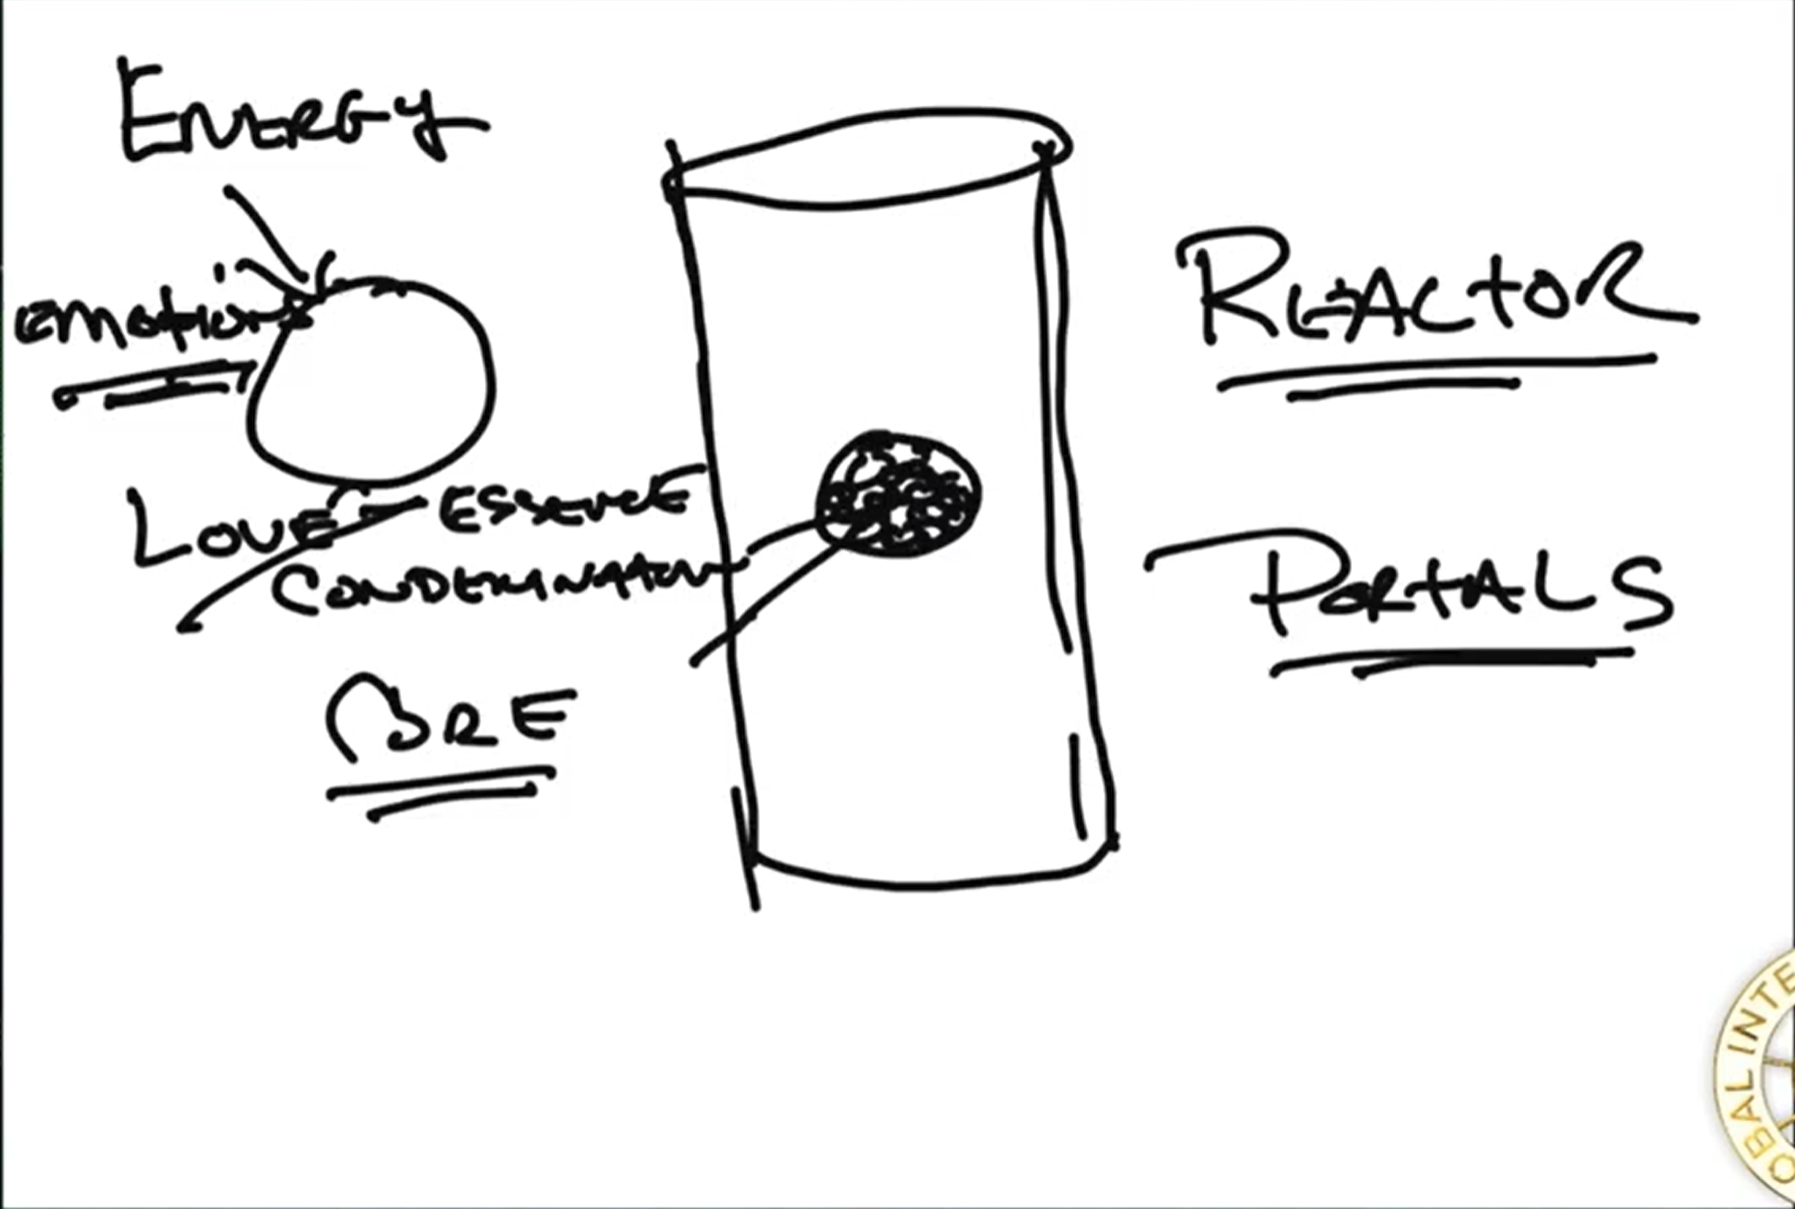 ENERGY
emotions
LOVE - ESSENCE
CONDEMNATION
CORE
REACTOR
PORTALS
OBAL INTE